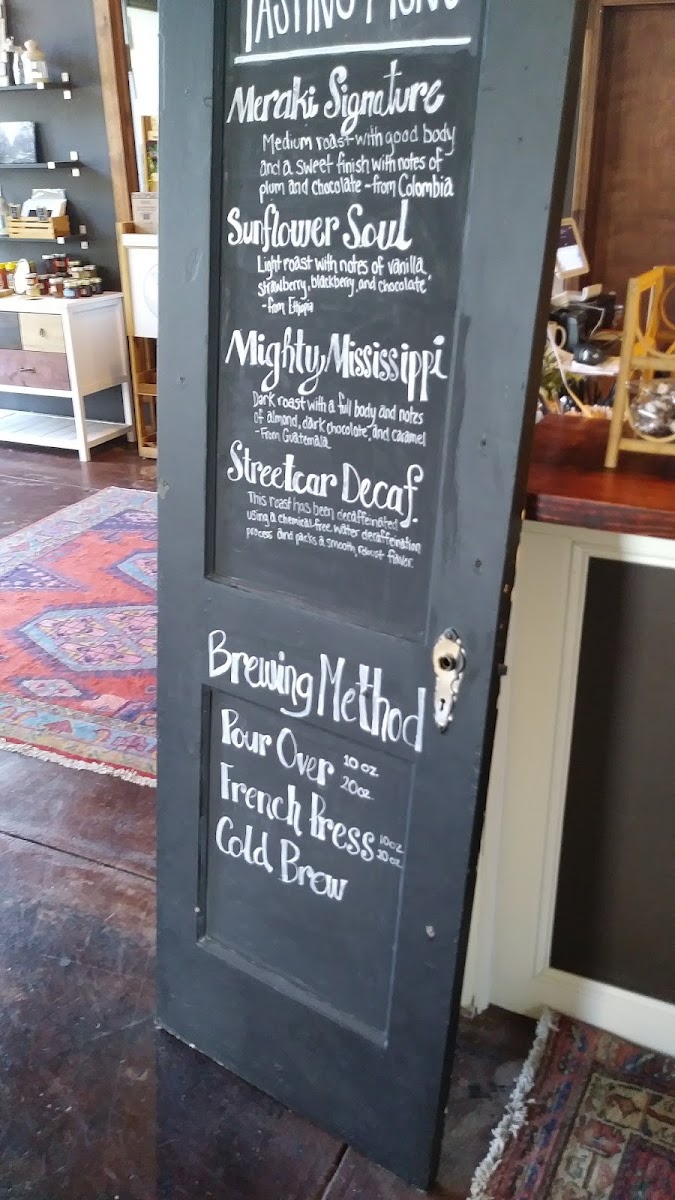 TASTING MENU
Meraki Signature
Medium roast with good body
and a sweet finish with notes of
plum and chocolate - from Colombia
Sunflower Soul
Light roast with notes of vanilla,
strawberry, blackberry, and chocolate
- from Ethiopia
Mighty Mississippi
Dark roast with a full body and notes
of almond, dark chocolate, and caramel
- From Guatemala
Streetcar Decaf.
This roast has been decaffeinated
using a chemical-free water decaffeination
process and packs a smooth, robust flavor.
Brewing Method
Pour Over 10 oz.
20oz.
French Press 10oz
20oz
Cold Brew